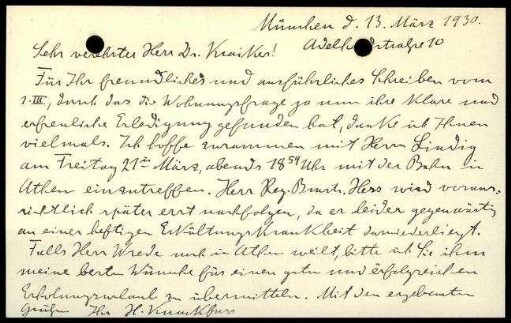 München d. 13. März 1930.
Adelheidstraße 10
Sehr verehrter Herr Dr. Kraiker!
Für Ihr freundliches und ausführliches Schreiben vom
1. III, durch das die Wohnungsfrage ja nun ihre klare und
erfreuliche Erledigung gefunden hat, danke ich Ihnen
vielmals. Ich hoffe zusammen mit Herrn Lindig
am Freitag 21ten März, abends 18 59 Uhr mit der Bahn in
Athen einzutreffen. Herr Reg. Bmstr. Hess wird voraus-
sichtlich später erst nachfolgen, da er leider gegenwärtig
an einer heftigen Erkältungskrankheit darniederliegt.
Falls Herr Wrede noch in Athen weilt, bitte ich Sie ihm
meine besten Wünsche für einen guten und erfolgreichen
Erholungsurlaub zu übermitteln. Mit den ergebensten
Grüßen Ihr H. Knackfuss